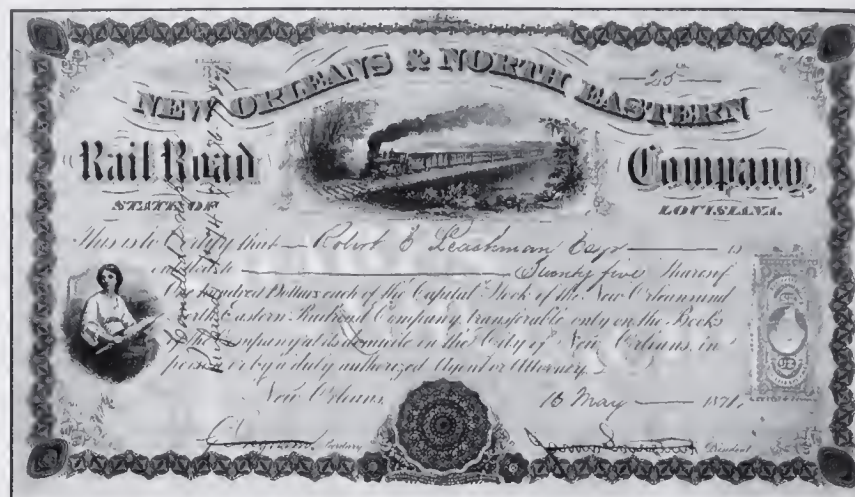 25
NEW ORLEANS & NORTH EASTERN
Rail Road Company,
STATE OF LOUISIANA.
This is to Certify that Robert E Leachman Esqr is
entitled to Twenty five Shares of
One hundred Dollars each of the Capital Stock of the New Orleans and
North Eastern Railroad Company, transferable only on the Books
of the Company at its domicile in the City of New Orleans, in
person or by a duly authorized Agent or Attorney.
New Orleans, 16 May 1871.
Secretary President